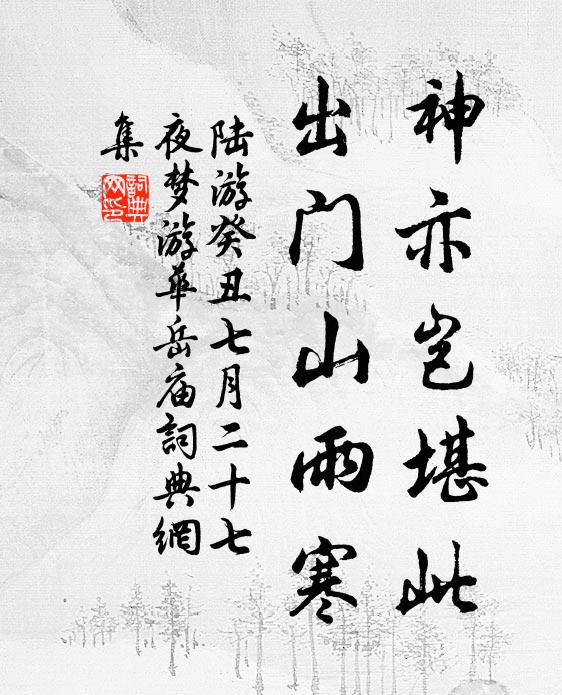 神亦岂堪此
出门山雨寒
陆游癸丑七月二十七
夜梦游华岳庙詞典網
集
詞典
网印